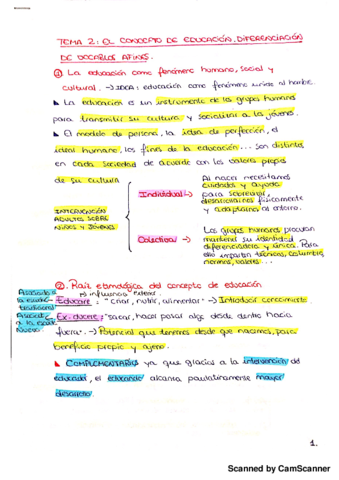 TEMA 2: EL CONCEPTO DE EDUCACIÓN. DIFERENCIACIÓN
DE VOCABLOS AFINES.
① La educación como fenómeno humano, social y
cultural. → IDEA: educación como fenómeno unido al hombre.
La educación es un instrumento de los grupos humanos
para transmitir su cultura y socializar a los jóvenes.
El modelo de persona, la idea de perfección, el
ideal humano, los fines de la educación... son distintos
en cada sociedad de acuerdo con los valores propios
de su cultura
INTERVENCIÓN
ADULTOS SOBRE
NIÑOS Y JÓVENES
Individual →
Al nacer necesitamos
cuidados y ayuda
para sobrevivir,
desarrollarnos físicamente
y adaptarnos al entorno.
Colectiva →
Los grupos humanos procuran
mantener su identidad
diferenciadora y única. Para
ello imparten técnicas, costumbres,
normas, valores...
②. Raíz etimológica del concepto de educación
Asociado a
la escuela
tradicional
→ influencia exterior.
Educare: "criar, nutrir, alimentar" → Introducir conocimiento.
Asociado
a la escuela
Nueva
Ex-ducere: "sacar, hacer pasar algo desde dentro hacia
fuera". → Potencial que tenemos desde que nacemos, para
beneficio propio y ajeno.
COMPLEMENTARIOS ya que gracias a la intervención del
educador, el educando alcanza paulatinamente mayor
desarrollo.
1.
Scanned by CamScanner